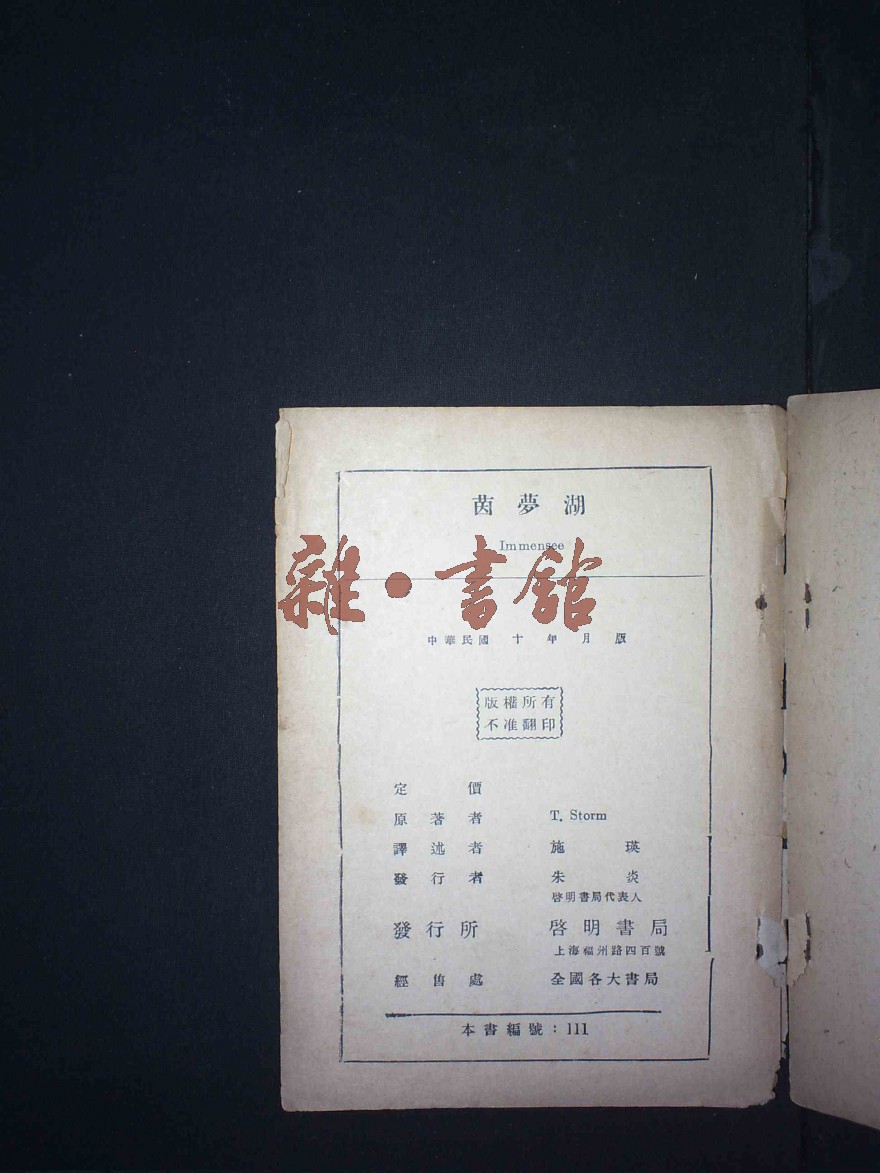 茵夢湖
Immensee
雜·書館
中華民國 十 年 月 版
版權所有
不准翻印
定價
原著者 T. Storm
譯述者 施瑛
發行者 朱炎
啓明書局代表人
發行所 啓明書局
上海福州路四百號
經售處 全國各大書局
本書編號：111